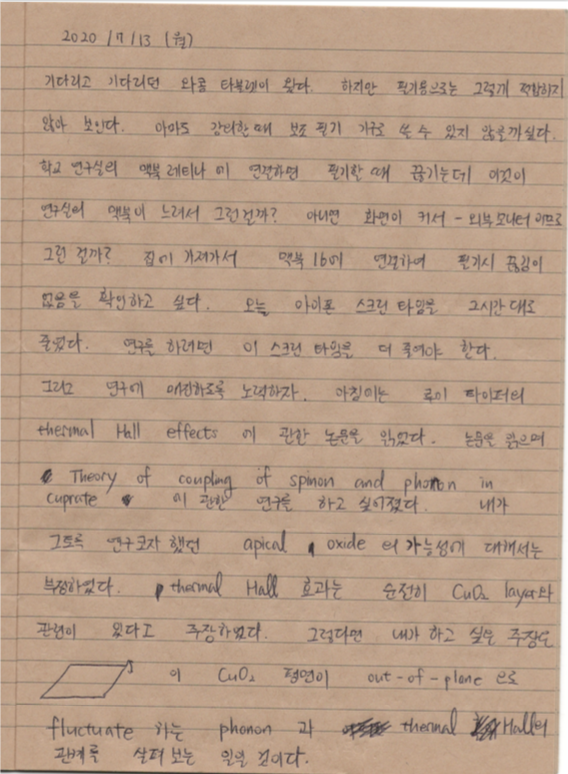 2020 / 7 / 13 (월)
기다리고 기다리던 와콤 타블렛이 왔다. 하지만 필기용으로는 그렇게 적합하지
않아 보인다. 아마도 강의할 때 보조 필기 기구로 쓸 수 있지 않을까싶다.
학교 연구실의 맥북 레티나 에 연결하면 필기할 때 끊기는데 이것이
연구실의 맥북이 느려서 그런걸까? 아니면 화면이 커서 - 외부모니터 이므로
그런 걸까? 집에 가져가서 맥북 16에 연결하여 필기시 끊김이
없음을 확인하고 싶다. 오늘 아이폰 스크린 타임을 2시간 대로
줄였다. 연구를 하려면 이 스크린 타임을 더 줄여야 한다.
그리고 연구에 매진하도록 노력하자. 아침에는 루이 타이퍼의
thermal Hall effects 에 관한 논문을 읽었다. 논문을 읽으며
Theory of coupling of spinon and phonon in
cuprate 에 관한 연구를 하고 싶어졌다. 내가
그토록 연구코자 했던 apical oxide 의 가능성에 대해서는
부정하였다. thermal Hall 효과는 순전히 CuO₂ layer와
관련이 있다고 주장하였다. 그렇다면 내가 하고 싶은 주장은
이 CuO₂ 평면이 out-of-plane 으로
fluctuate 하는 phonon 과 thermal Hall의
관계를 살펴 보는 일일 것이다.